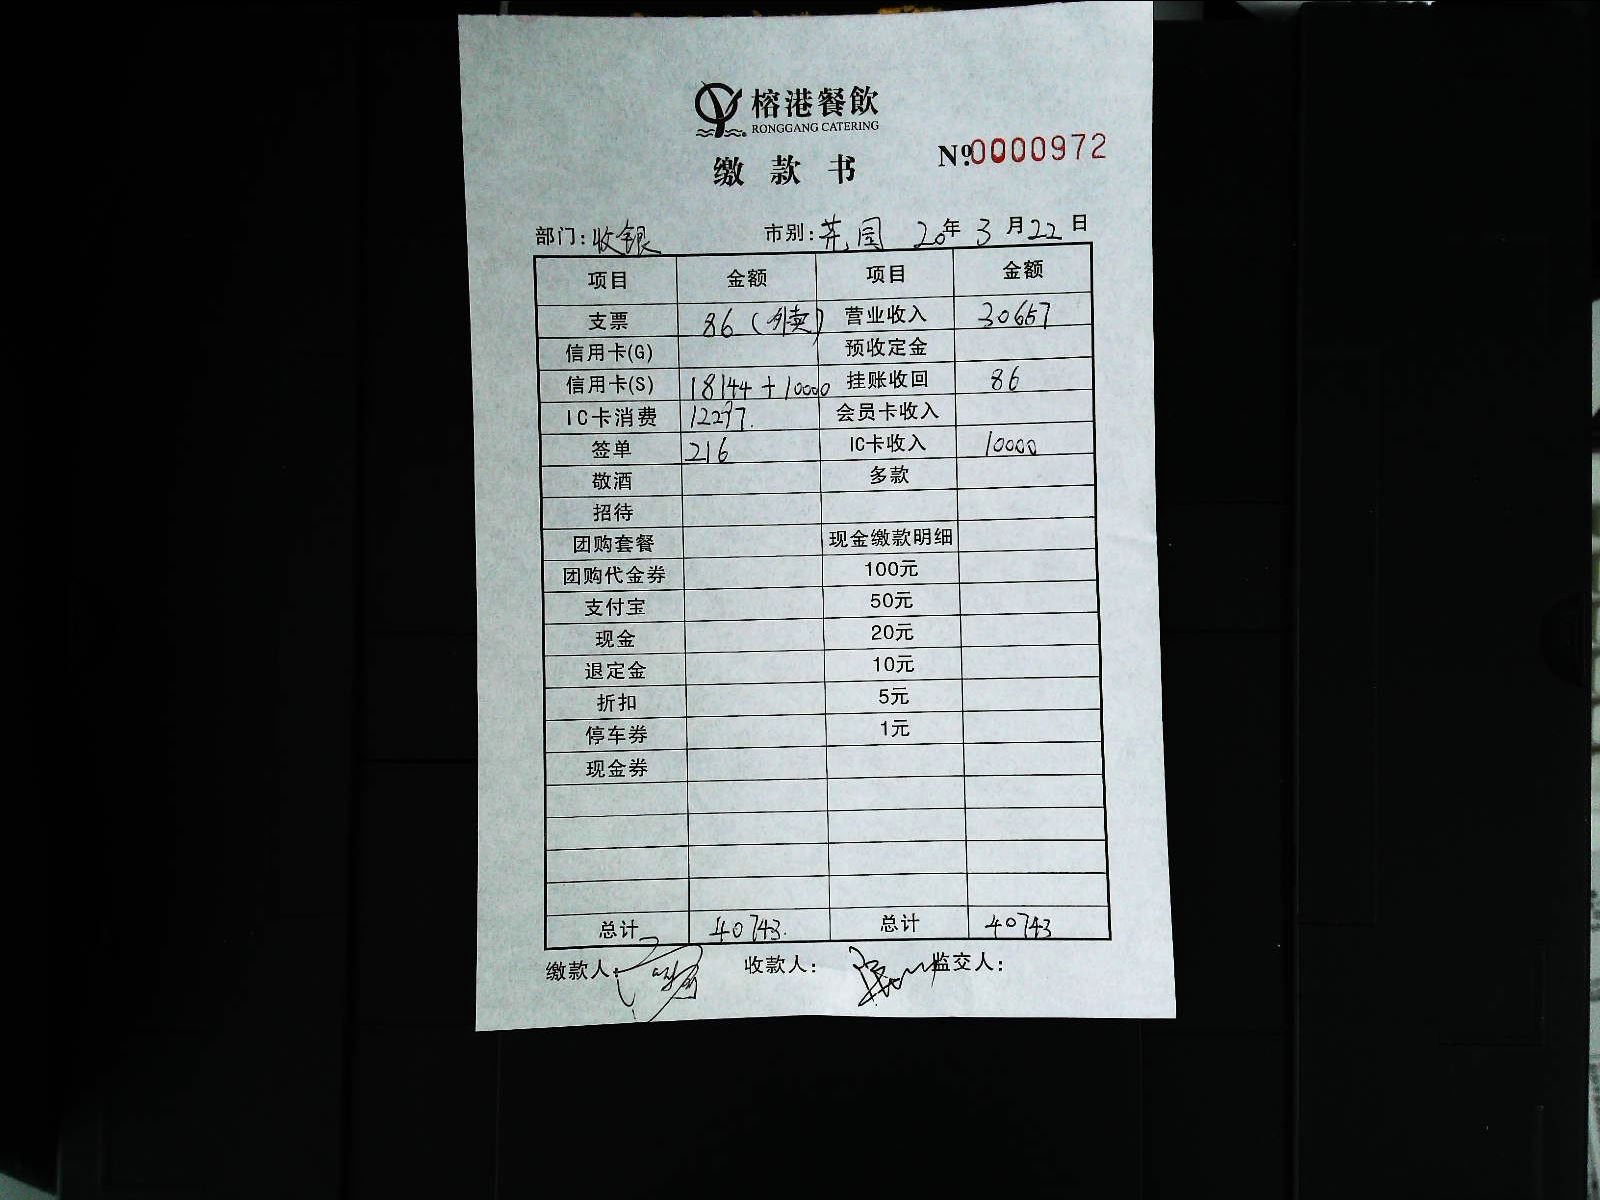 榕港餐飲
RONGGANG CATERING
缴款书
Nº0000972
部门:收银 市别: 20年3月22日
项目 金额 项目 金额
支票 86(外卖) 营业收入 30657
信用卡(G) 预收定金
信用卡(S) 18144+10000 挂账收回 86
IC卡消费 12297. 会员卡收入
签单 216 IC卡收入 10000
敬酒 多款
招待
团购套餐 现金缴款明细
团购代金券 100元
支付宝 50元
现金 20元
退定金 10元
折扣 5元
停车券 1元
现金券
总计 40743. 总计 40743
缴款人: 收款人: 监交人: